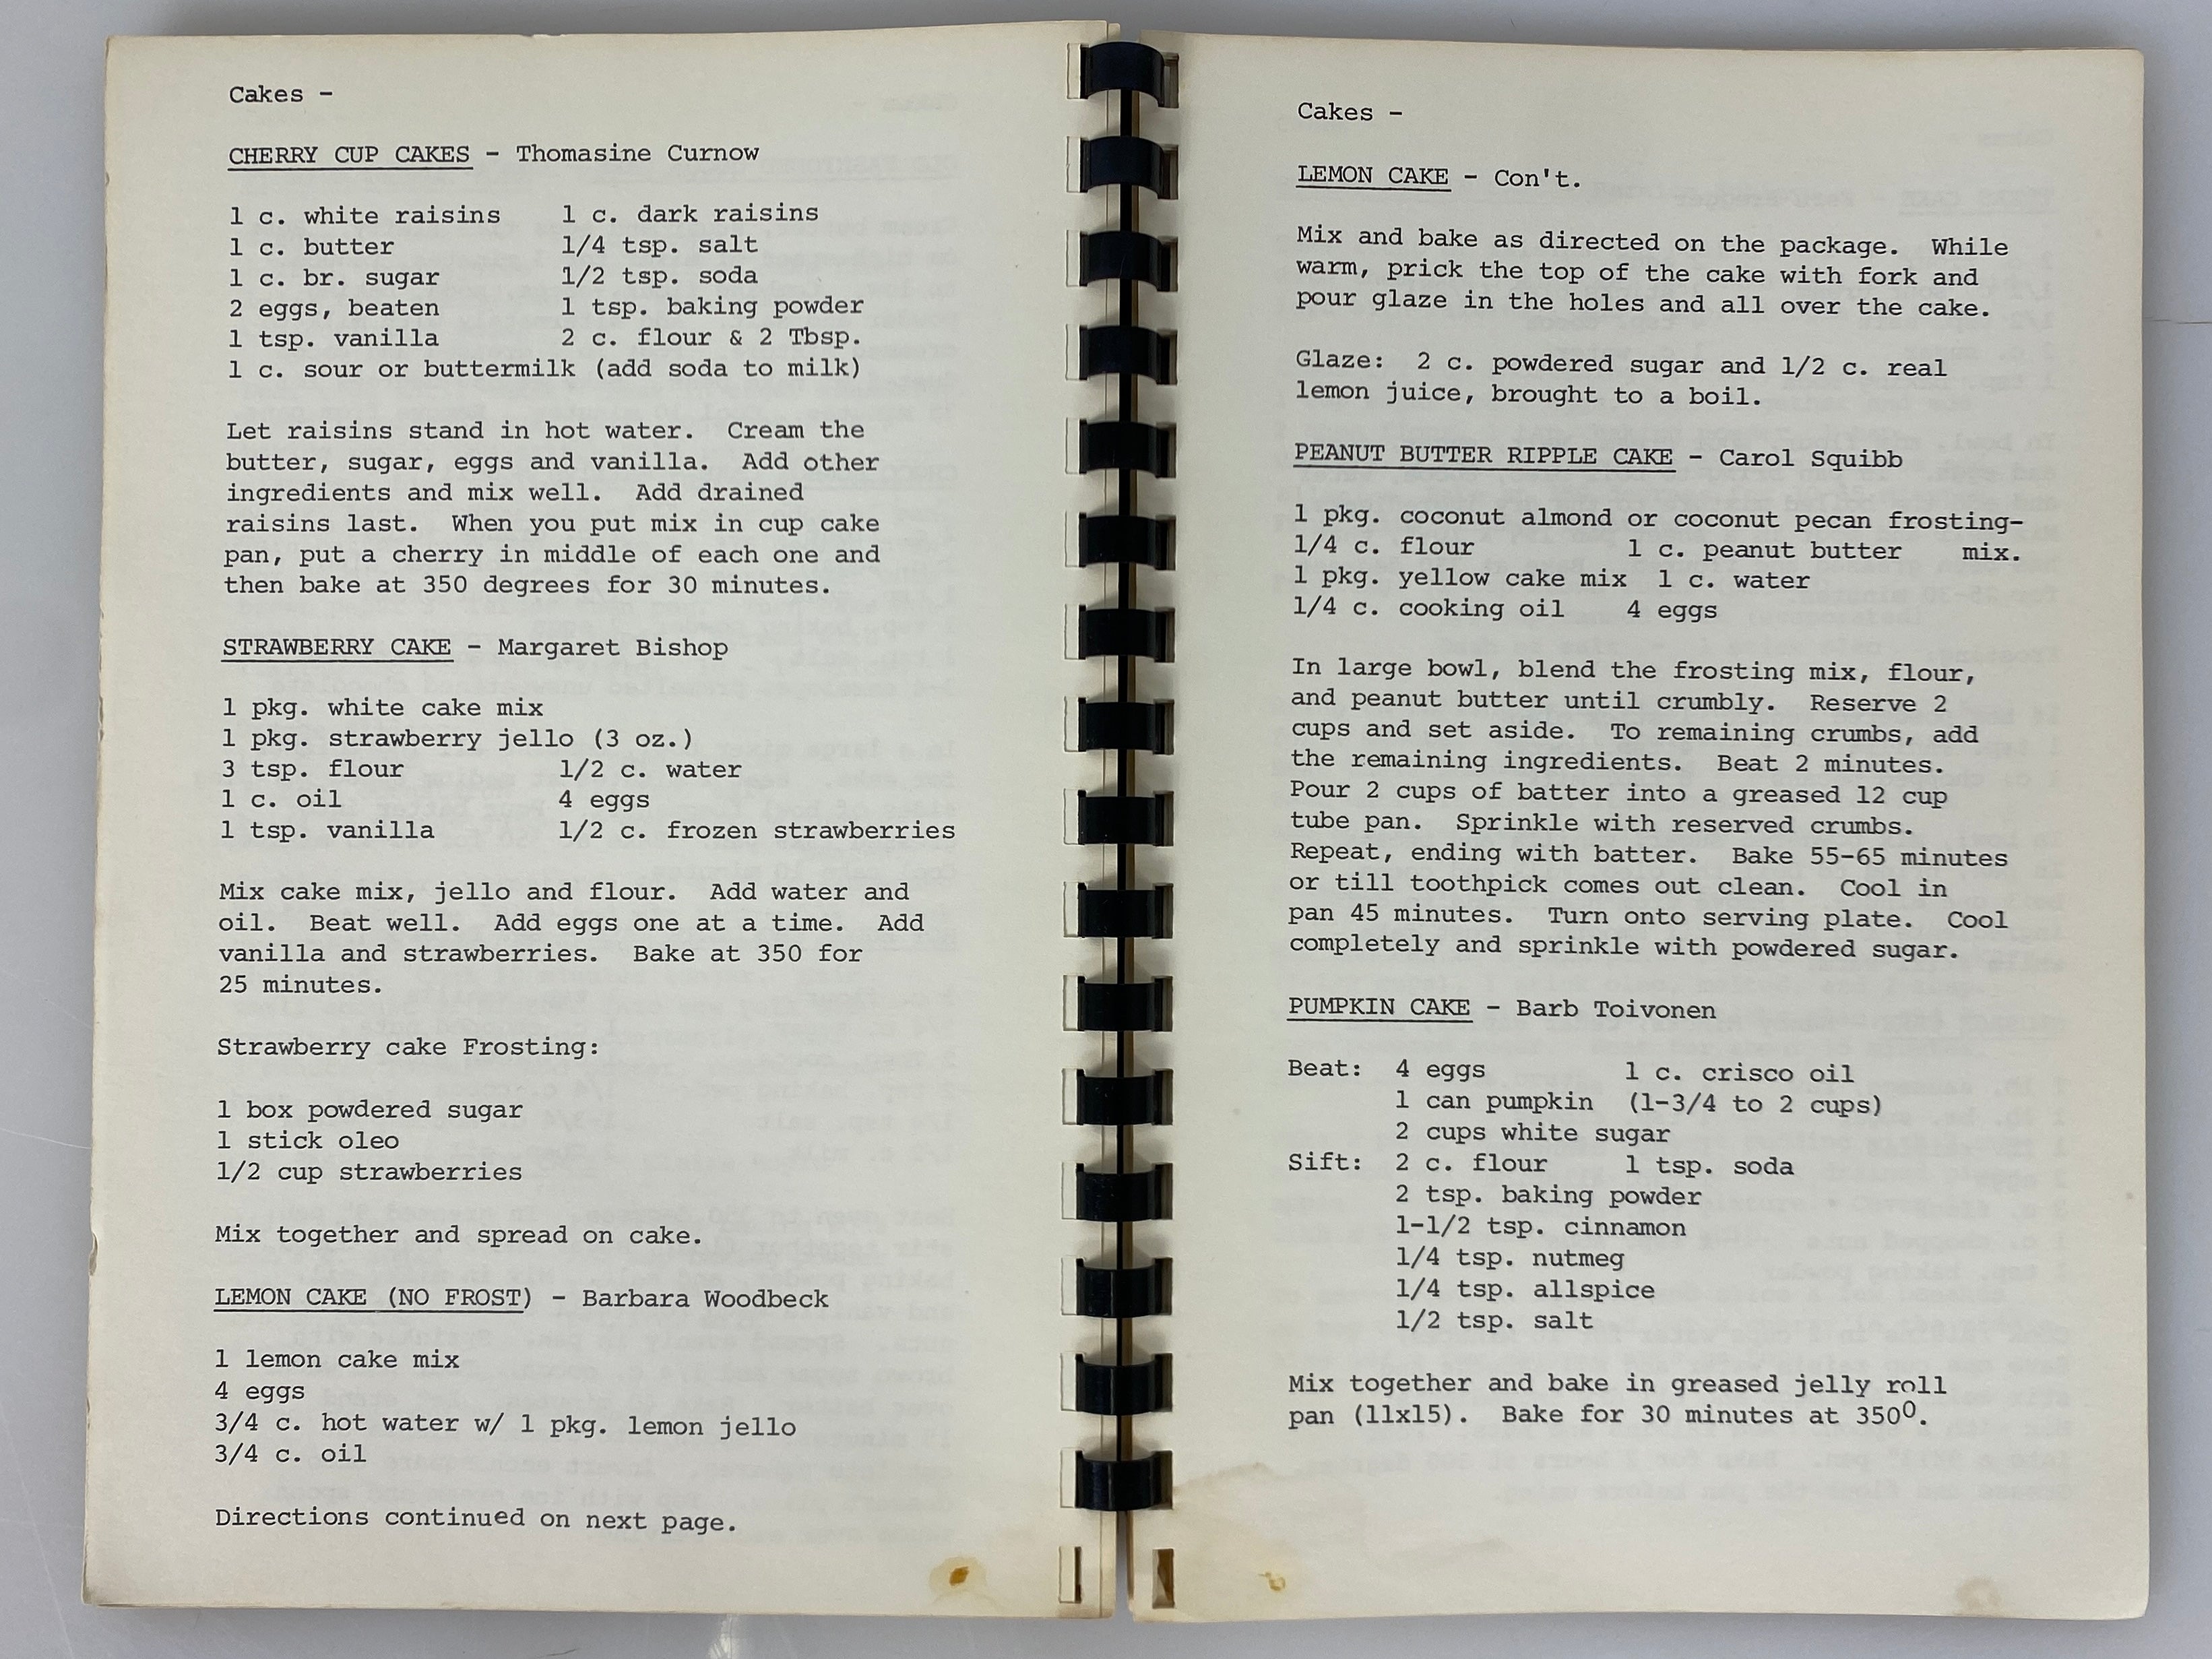 Cakes -
CHERRY CUP CAKES - Thomasine Curnow
1 c. white raisins 1 c. dark raisins
1 c. butter 1/4 tsp. salt
1 c. br. sugar 1/2 tsp. soda
2 eggs, beaten 1 tsp. baking powder
1 tsp. vanilla 2 c. flour & 2 Tbsp.
1 c. sour or buttermilk (add soda to milk)
Let raisins stand in hot water. Cream the
butter, sugar, eggs and vanilla. Add other
ingredients and mix well. Add drained
raisins last. When you put mix in cup cake
pan, put a cherry in middle of each one and
then bake at 350 degrees for 30 minutes.
STRAWBERRY CAKE - Margaret Bishop
1 pkg. white cake mix
1 pkg. strawberry jello (3 oz.)
3 tsp. flour 1/2 c. water
1 c. oil 4 eggs
1 tsp. vanilla 1/2 c. frozen strawberries
Mix cake mix, jello and flour. Add water and
oil. Beat well. Add eggs one at a time. Add
vanilla and strawberries. Bake at 350 for
25 minutes.
Strawberry cake Frosting:
1 box powdered sugar
1 stick oleo
1/2 cup strawberries
Mix together and spread on cake.
LEMON CAKE (NO FROST) - Barbara Woodbeck
1 lemon cake mix
4 eggs
3/4 c. hot water w/ 1 pkg. lemon jello
3/4 c. oil
Directions continued on next page.
Cakes -
LEMON CAKE - Con't.
Mix and bake as directed on the package. While
warm, prick the top of the cake with fork and
pour glaze in the holes and all over the cake.
Glaze: 2 c. powdered sugar and 1/2 c. real
lemon juice, brought to a boil.
PEANUT BUTTER RIPPLE CAKE - Carol Squibb
1 pkg. coconut almond or coconut pecan frosting-
1/4 c. flour 1 c. peanut butter mix.
1 pkg. yellow cake mix 1 c. water
1/4 c. cooking oil 4 eggs
In large bowl, blend the frosting mix, flour,
and peanut butter until crumbly. Reserve 2
cups and set aside. To remaining crumbs, add
the remaining ingredients. Beat 2 minutes.
Pour 2 cups of batter into a greased 12 cup
tube pan. Sprinkle with reserved crumbs.
Repeat, ending with batter. Bake 55-65 minutes
or till toothpick comes out clean. Cool in
pan 45 minutes. Turn onto serving plate. Cool
completely and sprinkle with powdered sugar.
PUMPKIN CAKE - Barb Toivonen
Beat: 4 eggs 1 c. crisco oil
1 can pumpkin (1-3/4 to 2 cups)
2 cups white sugar
Sift: 2 c. flour 1 tsp. soda
2 tsp. baking powder
1-1/2 tsp. cinnamon
1/4 tsp. nutmeg
1/4 tsp. allspice
1/2 tsp. salt
Mix together and bake in greased jelly roll
pan (11x15). Bake for 30 minutes at 350°.